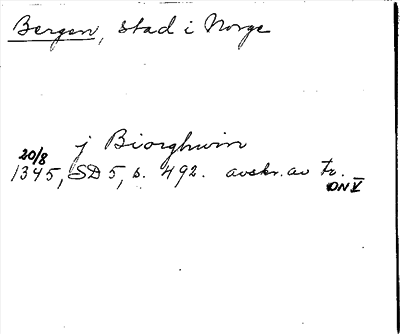 Bergen, stad i Norge
j Biorghwin
20/8
1345, SD 5, s. 492. avskr. av tr.
DN V